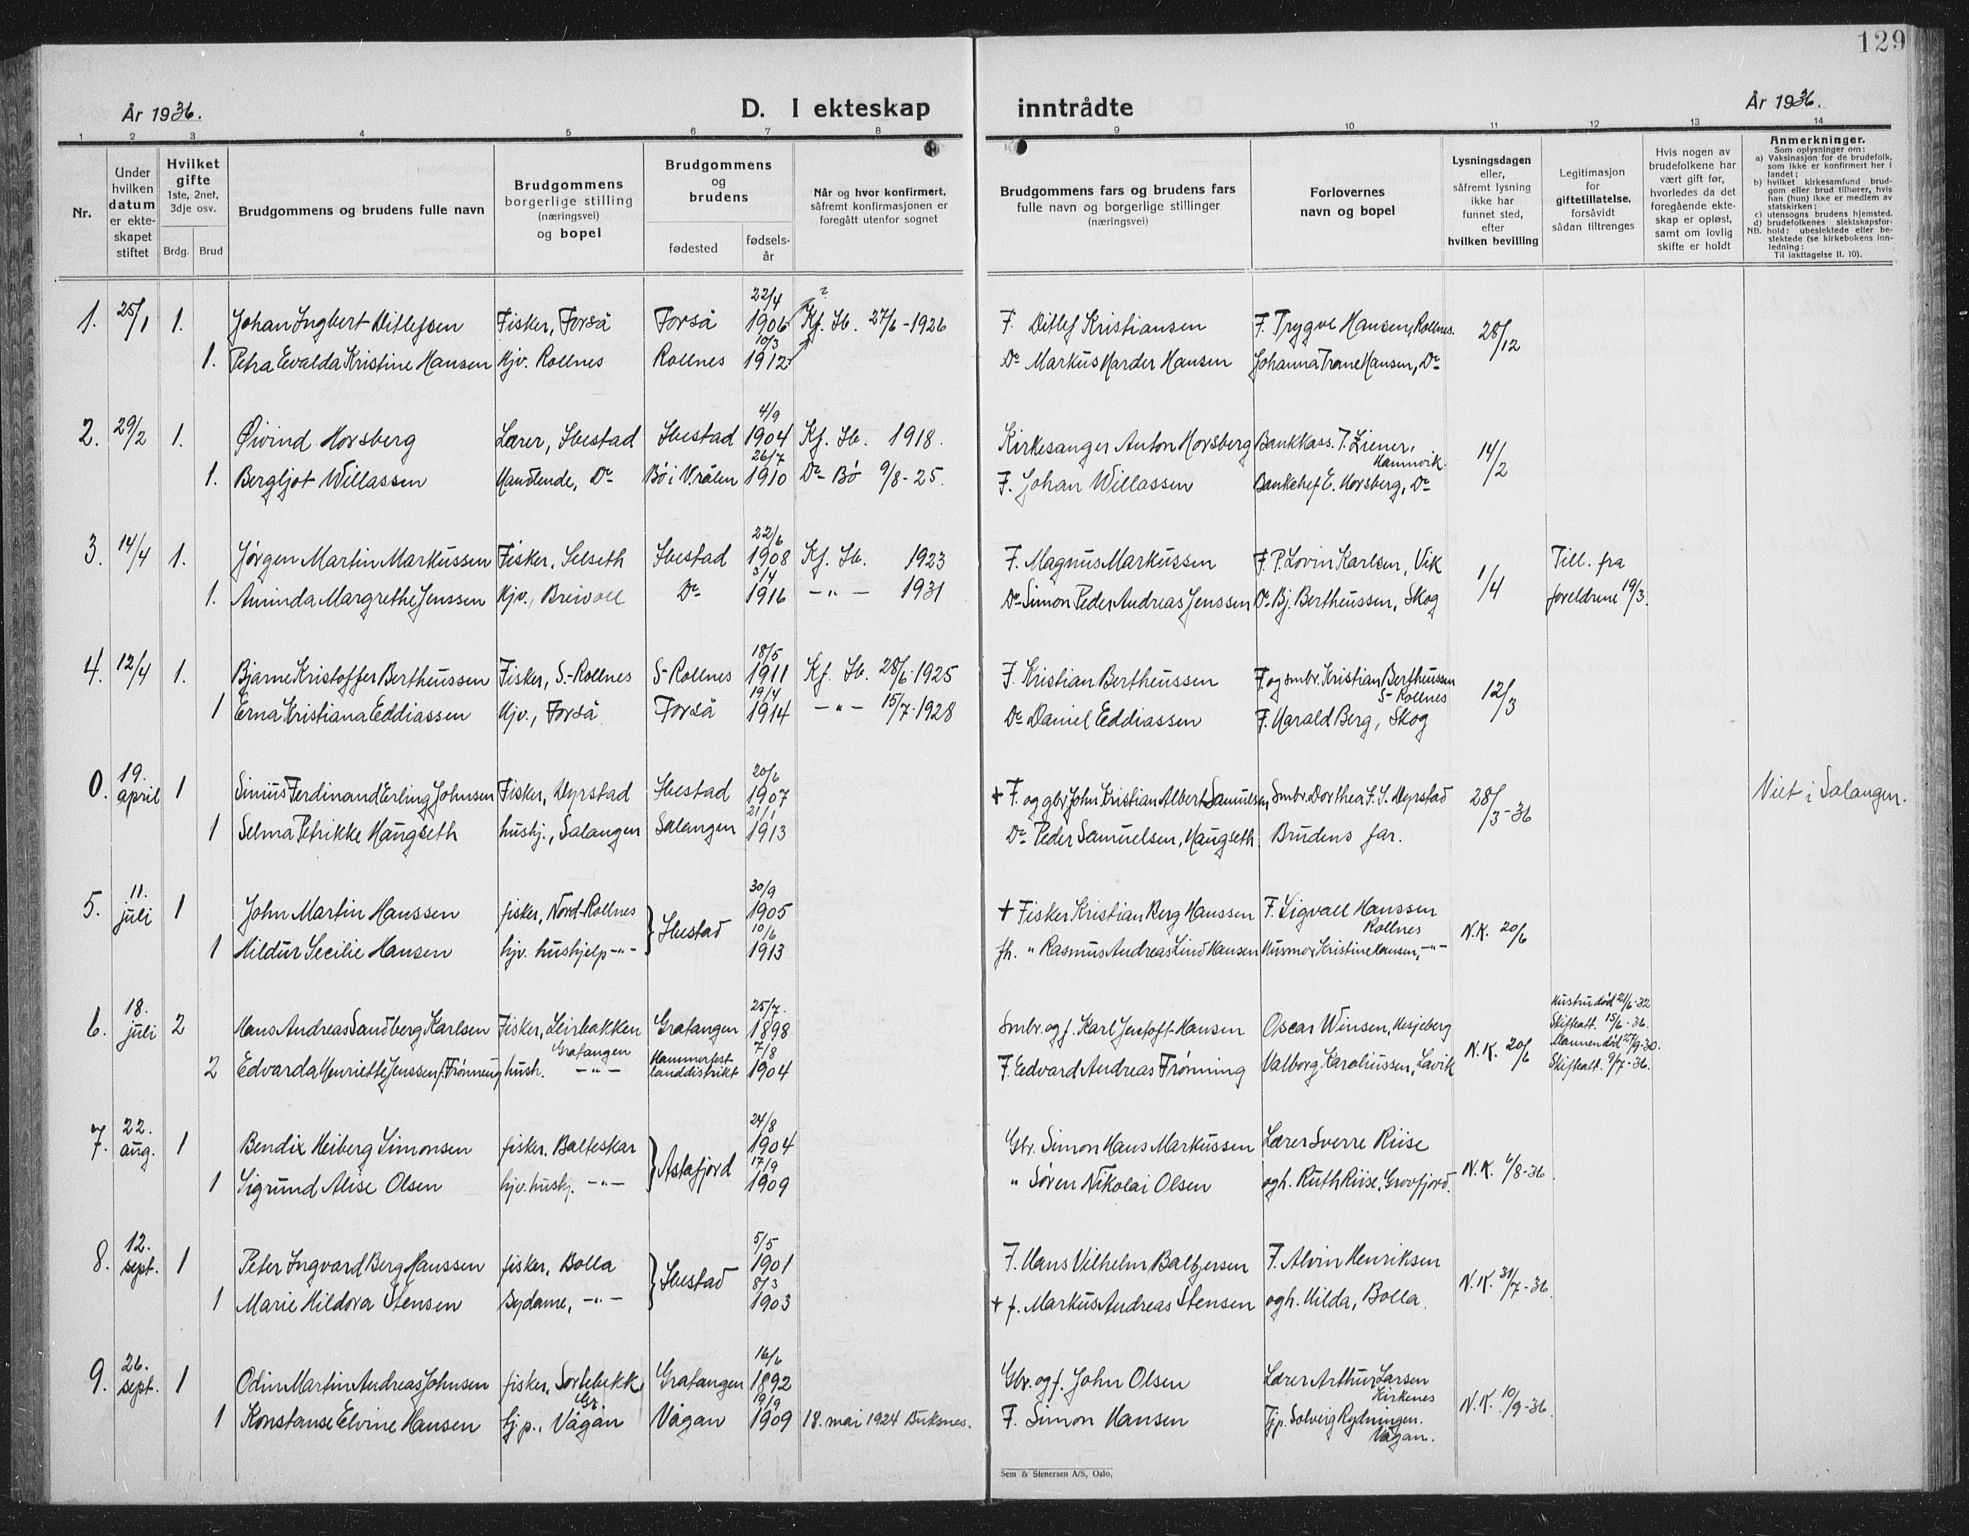 129
År 1936.
D. I ekteskap inntrådte
År 1936.
1 2 3 4 5 6 7 8 9 10 11 12 13 14
Nr.
Under hvilken datum er ekteskapet stiftet
Hvilket gifte 1ste, 2net, 3dje osv.
Brdg. Brud
Brudgommens og brudens fulle navn
Brudgommens borgerlige stilling (næringsvei) og bopel
Brudgommens og brudens
fødested
fødselsår
Når og hvor konfirmert, såfremt konfirmasjonen er foregått utenfor sognet
Brudgommens fars og brudens fars fulle navn og borgerlige stillinger (næringsvei)
Forlovernes navn og bopel
Lysningsdagen eller, såfremt lysning ikke har funnet sted, efter hvilken bevilling
Legitimasjon for giftetillatelse, forsåvidt sådan tiltrenges
Hvis nogen av brudefolkene har vært gift før, hvorledes da det foregående ekteskap er opløst, samt om lovlig skifte er holdt
Anmerkninger.
Som oplysninger om:
a) Vaksinasjon for de brudefolk, som ikke er konfirmert her i landet;
b) hvilket kirkesamfund brudgom eller brud tilhører, hvis han (hun) ikke er medlem av statskirken;
c) utensogns brudens hjemsted.
d) brudefolkenes slektskapsforhold: ubeslektede eller beslektede (se kirkebokens innledning:
Til iakttagelse II. 10).
NB.
1. 25/1 1. Johan Ingbert Ditlefsen Fisker, Forså Forså 22/4 1906 Kf. Ib. 27/6-1926 F. Ditlef Kristiansen F. Trygve Hansen, Rollnes. 28/12
1. Petra Evalda Kristine Hansen Hjv. Rollnes Rollnes 10/3 1912 Do Markus Harder Hansen Johanna Trane Hansen, Do
2. 29/2 1. Øivind Horsberg Lærer, Ibestad Ibestad 4/9 1904 Kf. Ib. 1918. Kirkesanger Anton Horsberg Bankkass. T. Ziener, Hamnvik. 14/2
1. Bergljot Willassen Handlende, Do Bø i V.rålen 26/7 1910 Do Bø 9/8-25. F. Johan Willassen Banksjef E. Horsberg, Do
3. 14/4 1. Jørgen Martin Markussen Fisker, Selseth Ibestad 22/6 1908 Kf. Ib. 1923 F. Magnus Markussen F. P. Lovin Karlsen, Vik 1/4 Till. fra
1. Aminda Margrethe Jenssen Hjv., Breivoll Do 3/4 1916 -"- 1931 Do Simon Peder Andreas Jenssen Do Bj. Bertheussen, Skog foreldrene 19/3.
4. 12/4 1. Bjarne Kristoffer Bertheussen Fisker, S.-Rollnes S-Rollnes 18/5 1911 Kf. Ib. 28/6-1925 F. Kristian Bertheussen F. og smbr. Kristian Bertheussen S-Rollnes 12/3
1 Erna Kristiana Eddiassen Hjv., Forså Forså 19/4 1914 -"- 15/7-1928 Do Daniel Eddiassen F. Harald Berg, Skog
0. 19. april 1 Sinius Ferdinand Erling Johnsen Fisker, Dyrstad Ibestad 20/6 1907 + F. og gbr. John Kristian Albert Samuelsen, Smbr. Dorthea F. S. Dyrstad 28/3-36 Viet i Salangen.
1 Selma Petrikke Haugseth hushj., Salangen Salangen 21/1 1913 Do Peder Samuelsen, Haugseth. Brudens far.
5. 11. juli 1 John Martin Hanssen fisker, Nord-Rollnes } Ibestad 30/9 1905 + Fisker Kristian Berg Hanssen F. Sigvall Hanssen Rollnes N.K. 20/6
1 Hildur Secilie Hansen hjv. hushjelp -"- 10/6 1913 fh. " Rasmus Andreas Lind Hansen Husmor Kristine Hansen, -"-
6. 18. juli 2 Hans Andreas Sandberg Karlsen Fisker, Leirbakken Gratangen Gratangen 25/7. 1898 Smbr. og f. Karl Jentoft Hansen Oscar Winsen, Hesjeberg N.K. 20/6 Hustru død 21/6-32 Skifteatt. 15/6-36.
2 Edvarda Henriette Jenssen f. Frønning hush. -"- Hammerfest landdistrikt 7/8 1904 F. Edvard Andreas Frønning Valborg Karoliussen, Lavik Mannen død 15/9-30. Skifteatt. 9/7-36.
7. 22. aug. 1 Bendix Heiberg Simonsen fisker. Balteskar } Astafjord 24/8 1904 Gbr. Simon Hans Markussen Lærer Sverre Riise N.K. 6/8-36.
1 Sigrund Alise Olsen hjv. hushj. -"- 17/9 1909 " Søren Nikolai Olsen og h. Ruth Riise, Grovfjord.
8. 12. sept. 1 Peter Ingvard Berg Hanssen fisker, Bolla } Ibestad 5/5 1901 F. Hans Vilhelm Balbjersen F. Alvin Henriksen N.K. 31/7-36.
1 Marie Hildora Stensen sydame, -"- 8/3 1903 + f. Markus Andreas Stensen og h. Hilda, Bolla.
9. 26. sept. 1 Odin Martin Andreas Johnsen fisker, Sørlebekk, Gr. Gratangen 16/6 1892 Gbr. og f. John Olsen Lærer Arthur Larsen Kirkenes N.K. 10/9-36.
1 Konstanse Elvine Hansen tj.p., Vågan Vågan 19/9 1909 18. mai 1924 Buksnes. F. Simon Hansen Tjp. Solveig Rydningen. Vågan.
Sem & Stenersen A/S, Oslo.